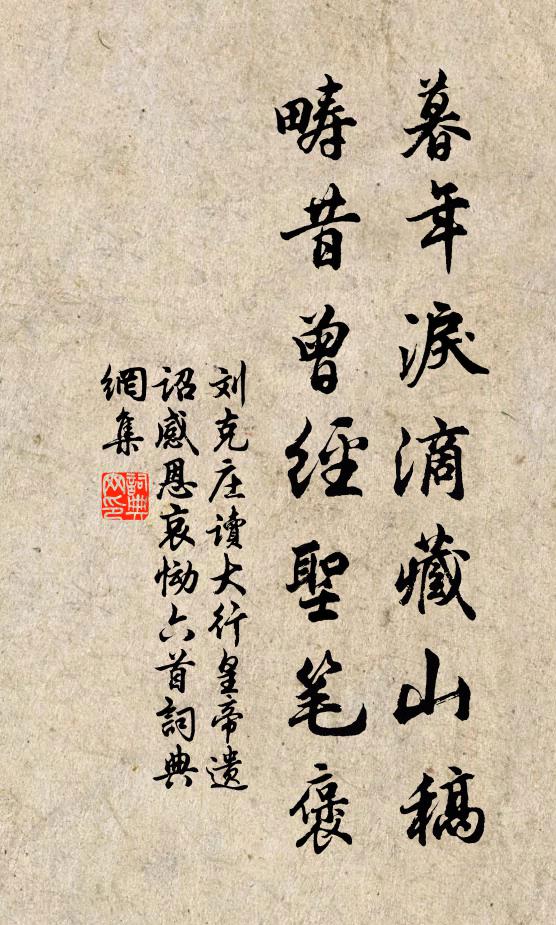 暮年淚滴藏山稿
疇昔曾經聖笔褒
刘克庄讀大行皇帝遗
詔感恩哀恸六首詞典
網集
詞典
网印